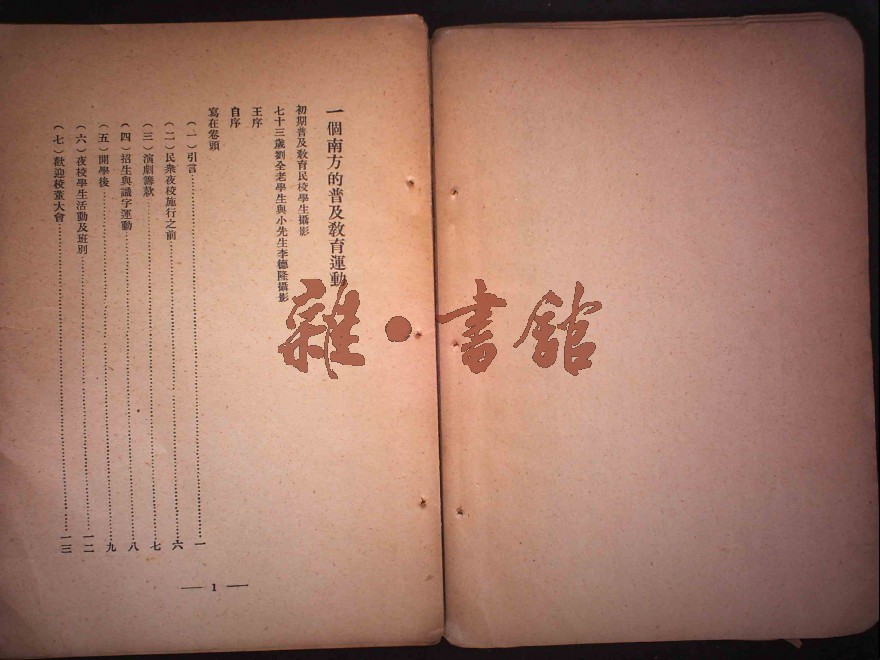 一個南方的普及敎育運動
初期普及敎育民校學生攝影
七十三歲劉全老學生與小先生李德隆攝影
王序
自序
寫在卷頭
（一）引言……一
（二）民衆夜校施行之前……六
（三）演劇籌款……七
（四）招生與識字運動……八
（五）開學後……九
（六）夜校學生活動及班別……一二
（七）歡迎校董大會……一三
— 1 —
雜·書館